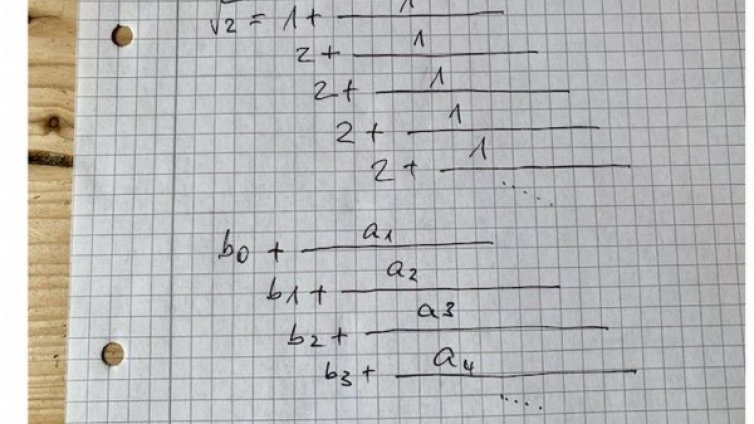 √2 = 1 + 1
2 + 1
2 + 1
2 + 1
2 + 1
.....
b0 + a1
b1 + a2
b2 + a3
b3 + a4
.....